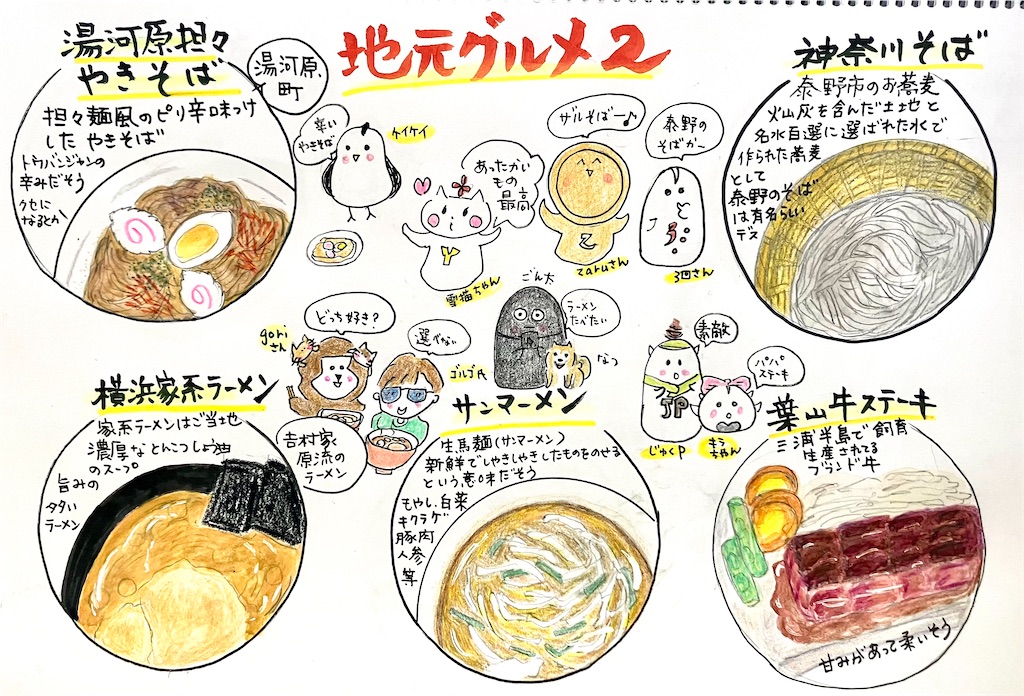 地元グルメ2
湯河原担々
やきそば
湯河原
町
担々麺風のピリ辛味つけ
した やきそば
トウバンジャンの
辛みだそう
クセに
なるとか
辛い
やきそば
ケイケイ
あったかい
もの
最高
雪猫ちゃん
ザルそばー♪
zaruさん
秦野の
そばかー
3回さん
神奈川そば
秦野市のお蕎麦
火山灰を含んだ土地と
名水百選に選ばれた水で
作られた蕎麦
として
秦野のそば
は有名らしい
デス
どっち好き?
goriさん
選べない
ゴルゴ氏
ごん太
ラーメン
たべたい
なつ
素敵
JP
じゅくP
パパ
ステーキ
ちゃん
横浜家系ラーメン
家系ラーメンはご当地
濃厚なとんこつしょう油
のスープ
旨みの
タタい
ラーメン
吉村家
原流の
ラーメン
サンマーメン
生馬麺(サンマーメン)
新鮮でしゃきしゃきしたものをのせる
という意味だそう
もやし、白菜
キクラゲ
豚肉
人参
等
葉山牛ステーキ
三浦半島で飼育
生産されてる
ブランド牛
甘みがあって柔いそう